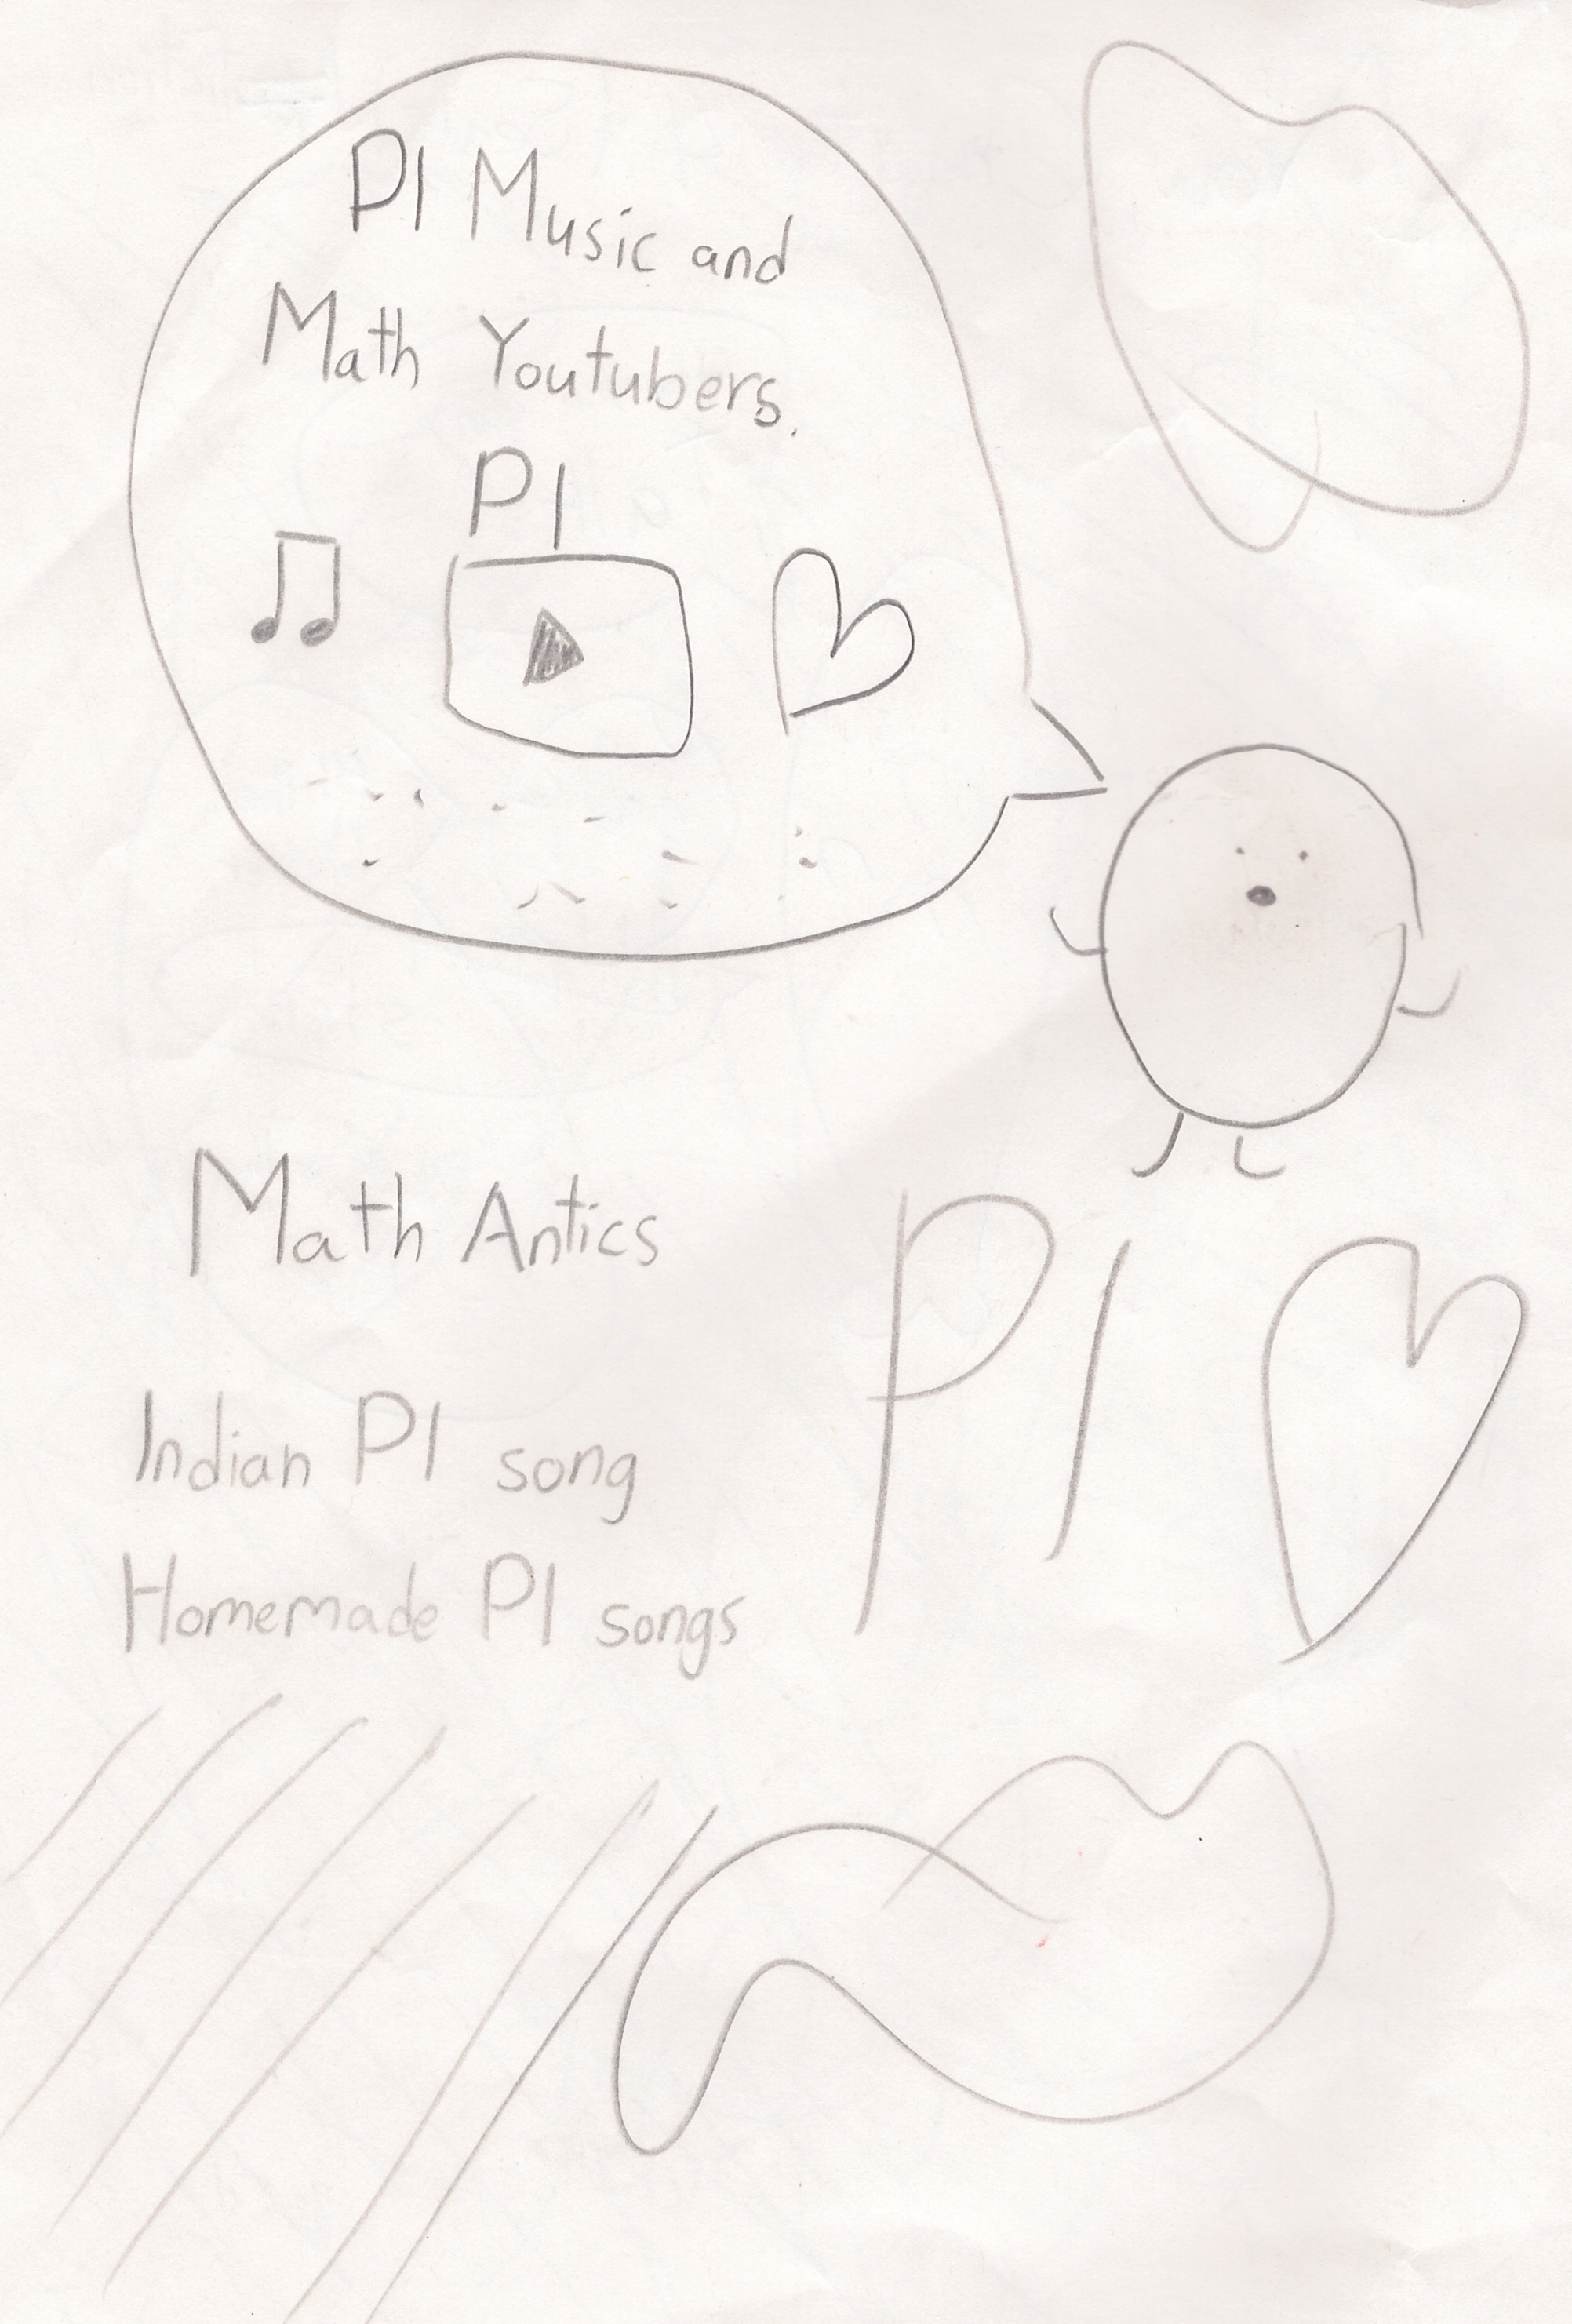 PI Music and
Math Youtubers.
PI
Math Antics
PI
Indian PI song
Homemade PI songs